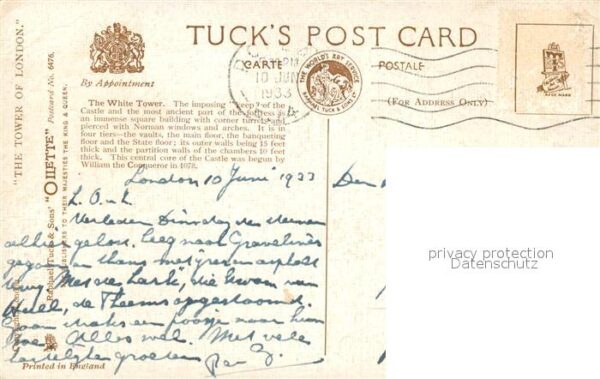 TUCK'S POST CARD
By Appointment
CARTE POSTALE
(FOR ADDRESS ONLY)
THE WORLD'S ART SERVICE
RAPHAEL TUCK & SONS LTD
TRADE MARK
10 JUN
1933
"THE TOWER OF LONDON."
Raphael Tuck & Sons' "OILETTE" Postcard No. 6476.
PUBLISHERS TO THEIR MAJESTIES THE KING & QUEEN.
The White Tower. The imposing "keep" of the
Castle and the most ancient part of the fortress is
an immense square building with corner turrets and
pierced with Norman windows and arches. It is in
four tiers—the vaults, the main floor, the banqueting
floor and the State floor; its outer walls being 15 feet
thick and the partition walls of the chambers 10 feet
thick. This central core of the Castle was begun by
William the Conqueror in 1078.
London 10 Juni 1933
Den
L. O. & L.
Verleden Dinsdag de steenen
alhier gelost. Leeg naar Gravelines
gegaan thans met asphalt
terug. Met de "Lark", die kwam van
Hull, de Theems opgestoomd.
Gaan straks een loopje naar hem
toe. Alles wel. Met vele
hartelijke groeten
Printed in England
privacy protection
Datenschutz